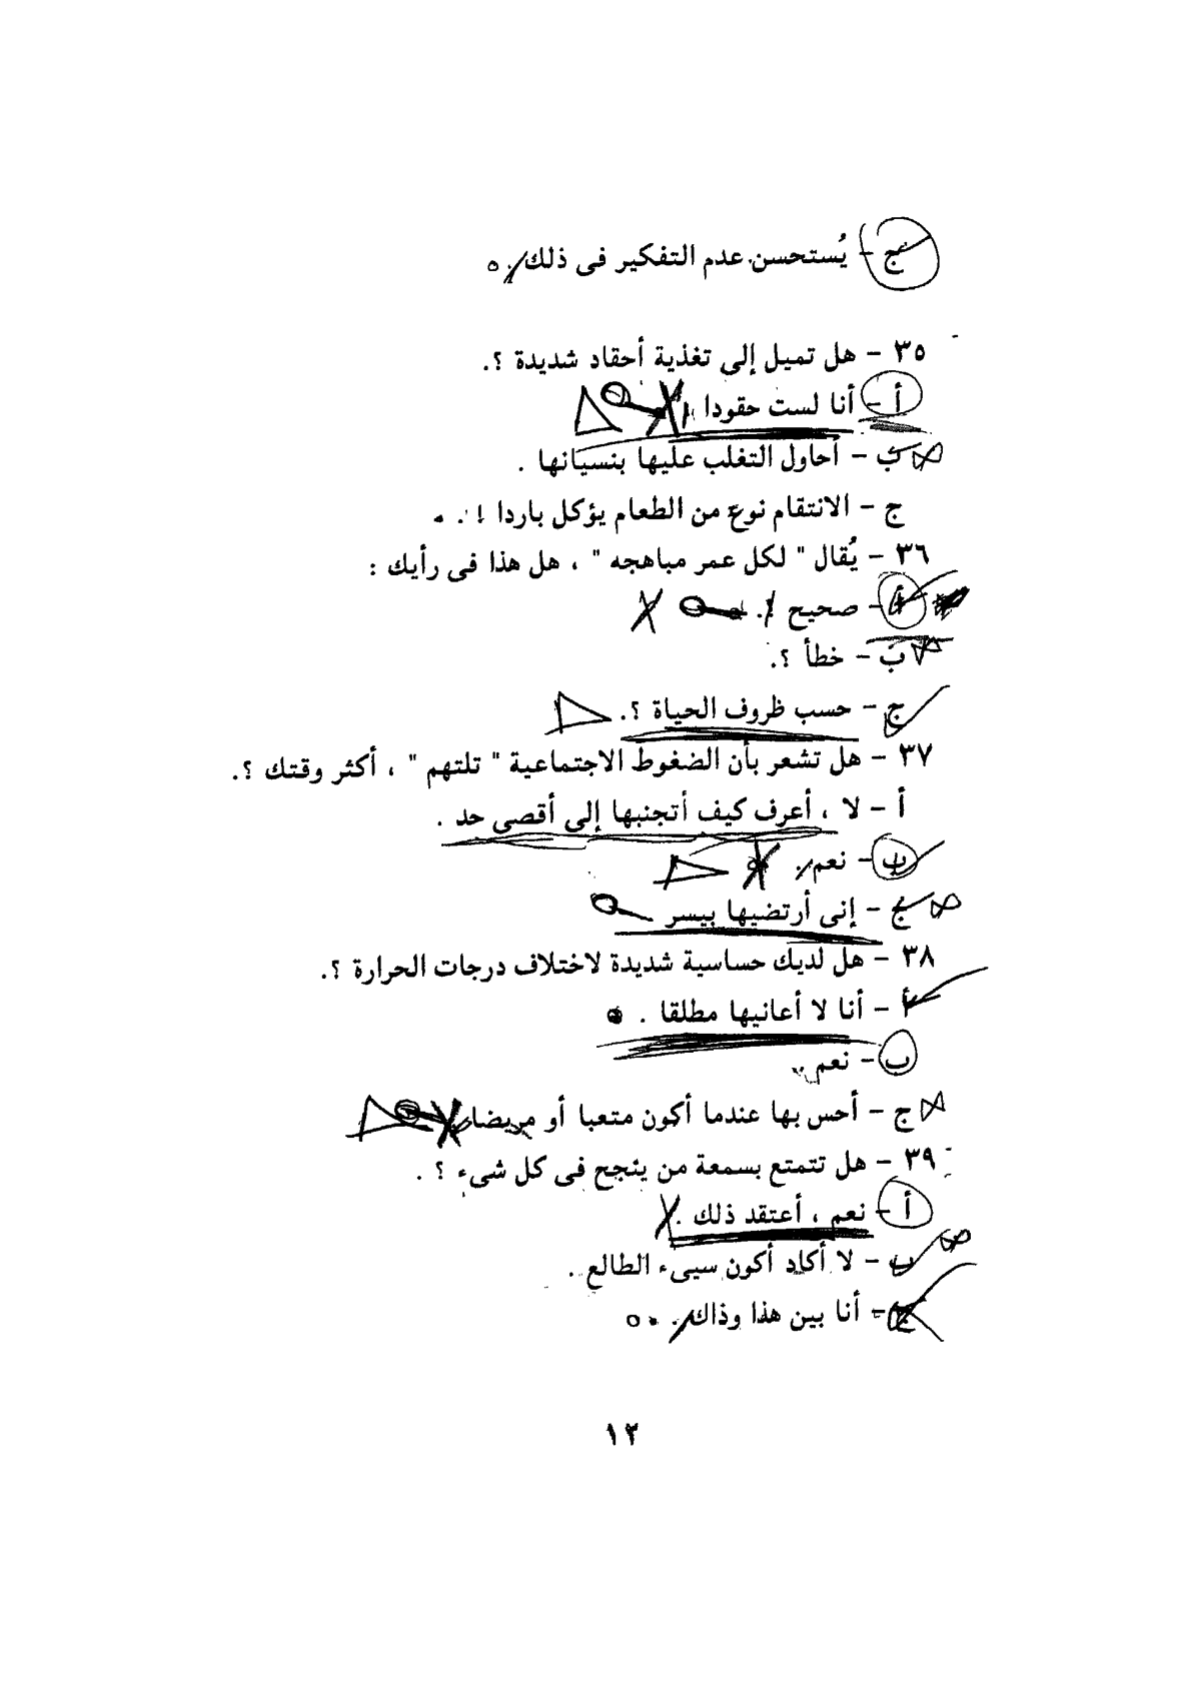 ج - يُستحسن عدم التفكير فى ذلك .
٣٥ - هل تميل إلى تغذية أحقاد شديدة ؟.
أ - أنا لست حقودا .
ب - أحاول التغلب عليها بنسيانها .
ج - الانتقام نوع من الطعام يؤكل باردا ! .
٣٦ - يُقال " لكل عمر مباهجه " ، هل هذا فى رأيك :
أ - صحيح ؟.
ب - خطأ ؟.
ج - حسب ظروف الحياة ؟.
٣٧ - هل تشعر بأن الضغوط الاجتماعية " تلتهم " ، أكثر وقتك ؟.
أ - لا ، أعرف كيف أتجنبها إلى أقصى حد .
ب - نعم .
ج - إنى أرتضيها بيسر
٣٨ - هل لديك حساسية شديدة لاختلاف درجات الحرارة ؟.
أ - أنا لا أعانيها مطلقا .
ب - نعم .
ج - أحس بها عندما أكون متعبا أو مريضا
٣٩ - هل تتمتع بسمعة من ينجح فى كل شىء ؟ .
أ - نعم ، أعتقد ذلك .
ب - لا أكاد أكون سيىء الطالع .
ج - أنا بين هذا وذاك .
١٣